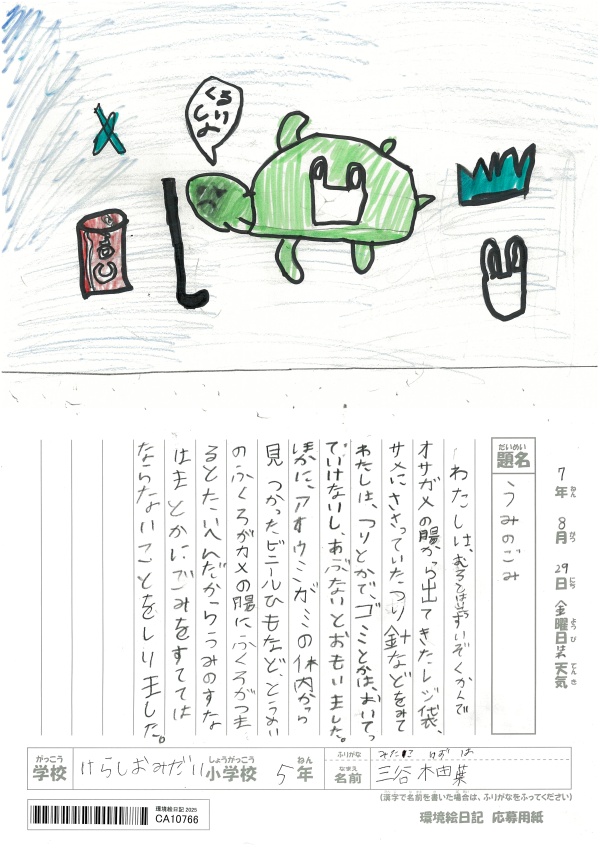 くる
しい
よ
7年 8月 29日 金曜日 天気
ねん がつ にち ようび てんき
だいめい
題名
うみのごみ
わたしは、すいぞくかんで
オサガメの腸から出てきたレジ袋、
サメにささっていたつり針などをみて
わたしは、つりとかで、ゴミとかは、おいてっ
ていけないし、あぶないとおもいました。
ほかに、アオウミガミの体内から
見つかったビニールひもなど、とうめい
のふくろがカメの腸にふくろがつま
るとたいへんだからうみのすな
はまとかにごみをすてては
ならないことをしりました。
がっこう しょうがっこう ねん
学校 けらしおみだい 小学校 5年
ふりがな みたに ゆずは
なまえ
名前 三谷 柚葉
(漢字で名前を書いた場合は、ふりがなをふってください)
環境絵日記 2025
CA10766
環境絵日記 応募用紙